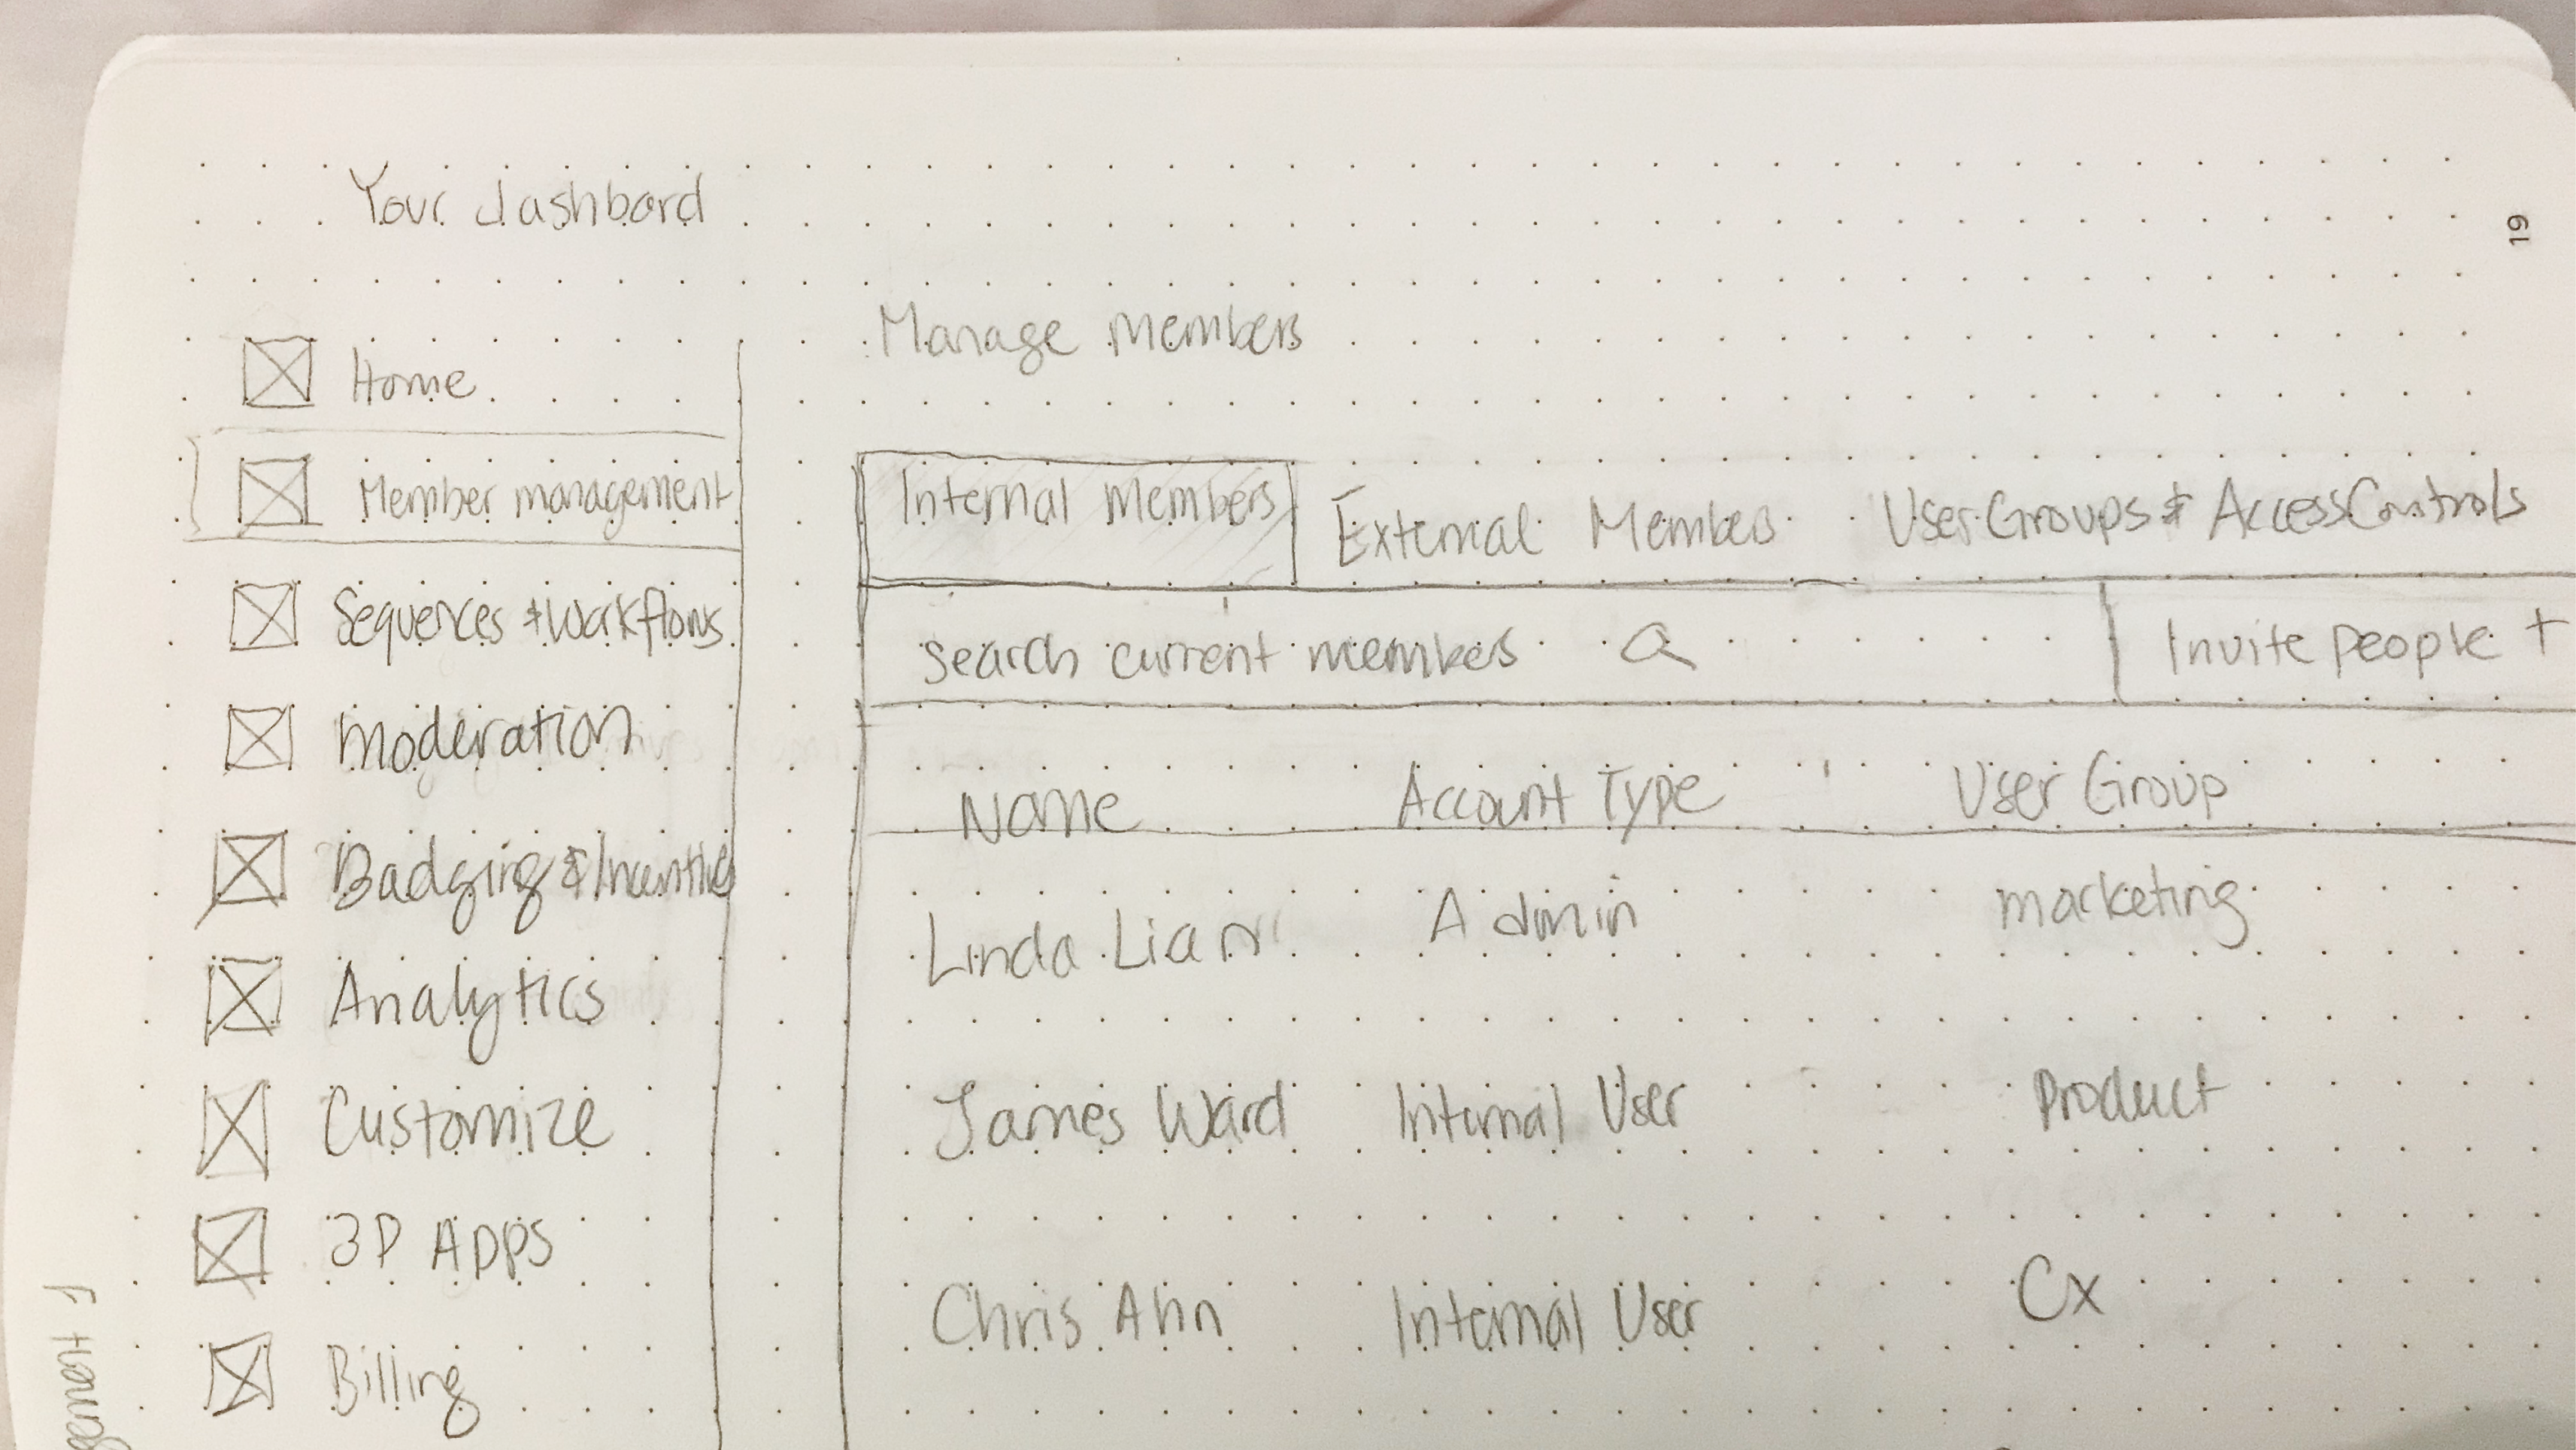 Your dashbord
19
Home
Member management
Sequences & Workflows
Moderation
Badging & Incentives
Analytics
Customize
3P Apps
Billing
Manage Members
Internal Members
External Members
User Groups & Access Controls
Search current members
Invite people +
Name Account Type User Group
Linda Admin marketing
James Ward Internal User Product
Chris Ahn Internal User Cx